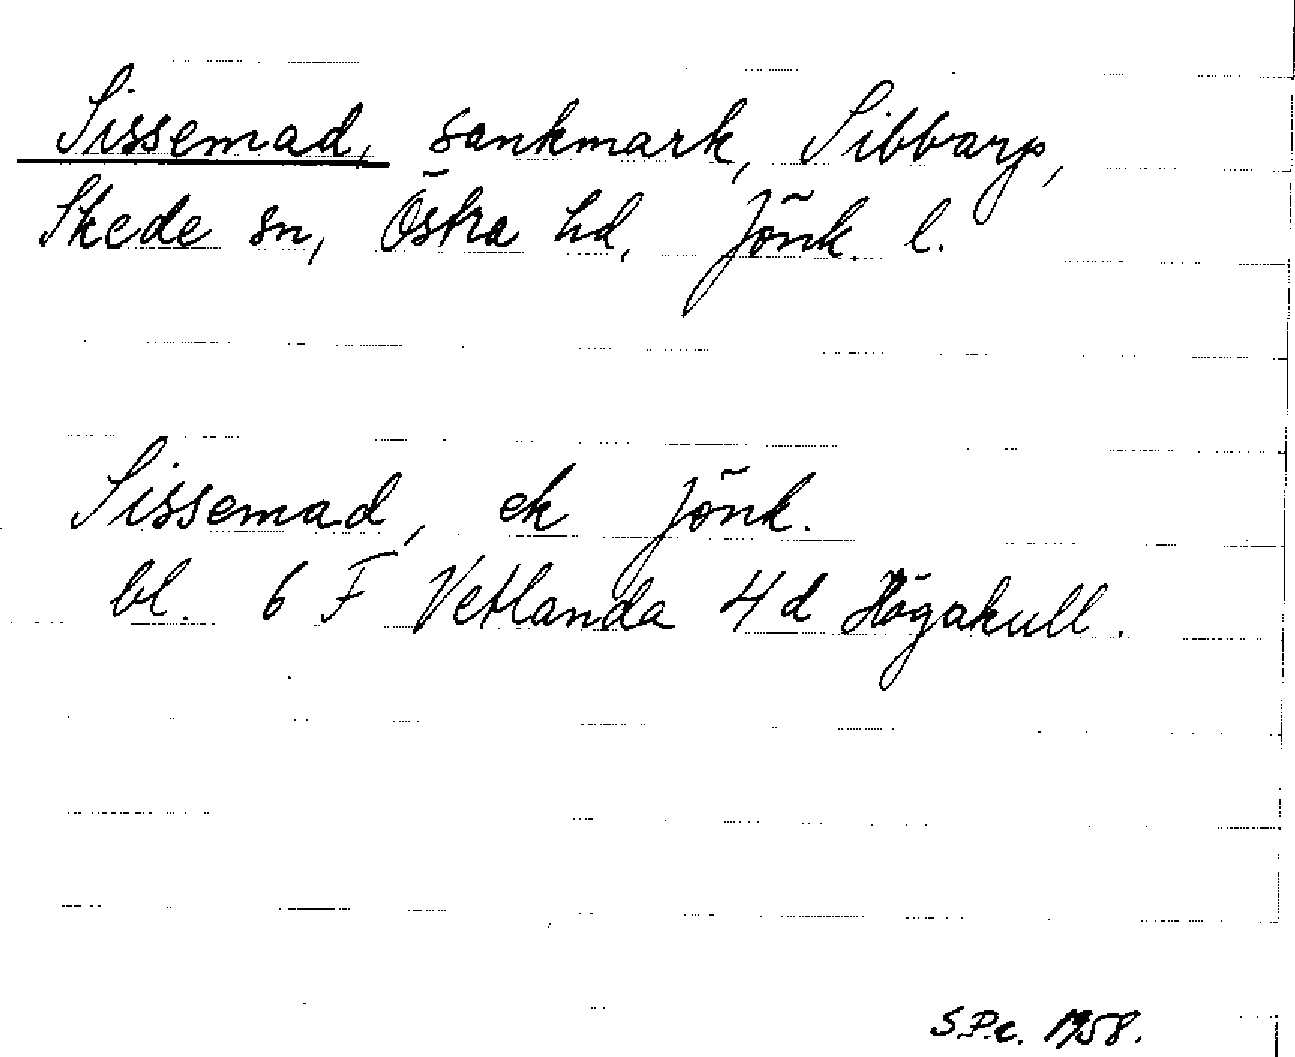 Sissemad, sankmark, Sibbarp,
Skede sn, Östra hd, Jönk. l.
Sissemad, ek Jönk.
bl. 6 F Vetlanda 4 d Högakull.
S.P.c. 1958.